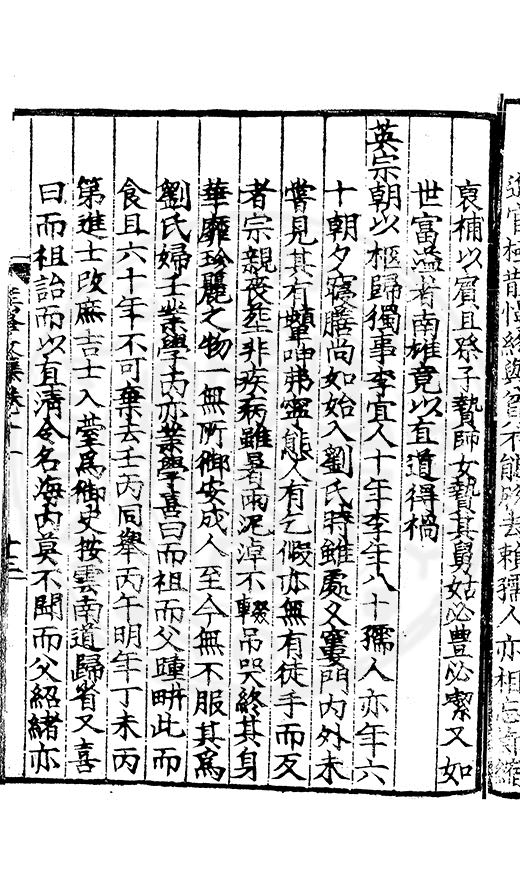 衷補以賓且孫子贄師女贄其舅姑必豊必潔又如
世富溢者南雄竟以直道得禍
英宗朝以柩歸獨事李宜人十年李年八十孺人亦年六
十朝夕寢膳尚如始入劉氏時雖處久窶門内外未
嘗見其有顰呻弗寧態人有乞假亦無有徒手而反
者宗親喪葬非疾病雖暑雨泥淖不輟吊哭終其身
華靡珍麗之物一無所御安成人至今無不服其爲
劉氏婦壬業學丙亦業學喜曰而祖而父踵畊此而
食且六十年不可棄去壬丙同舉丙午明年丁未丙
第進士改庶吉士入臺爲御史按雲南道歸省又喜
曰而祖詒而以直清令名海内莫不聞而父紹緒亦
十二